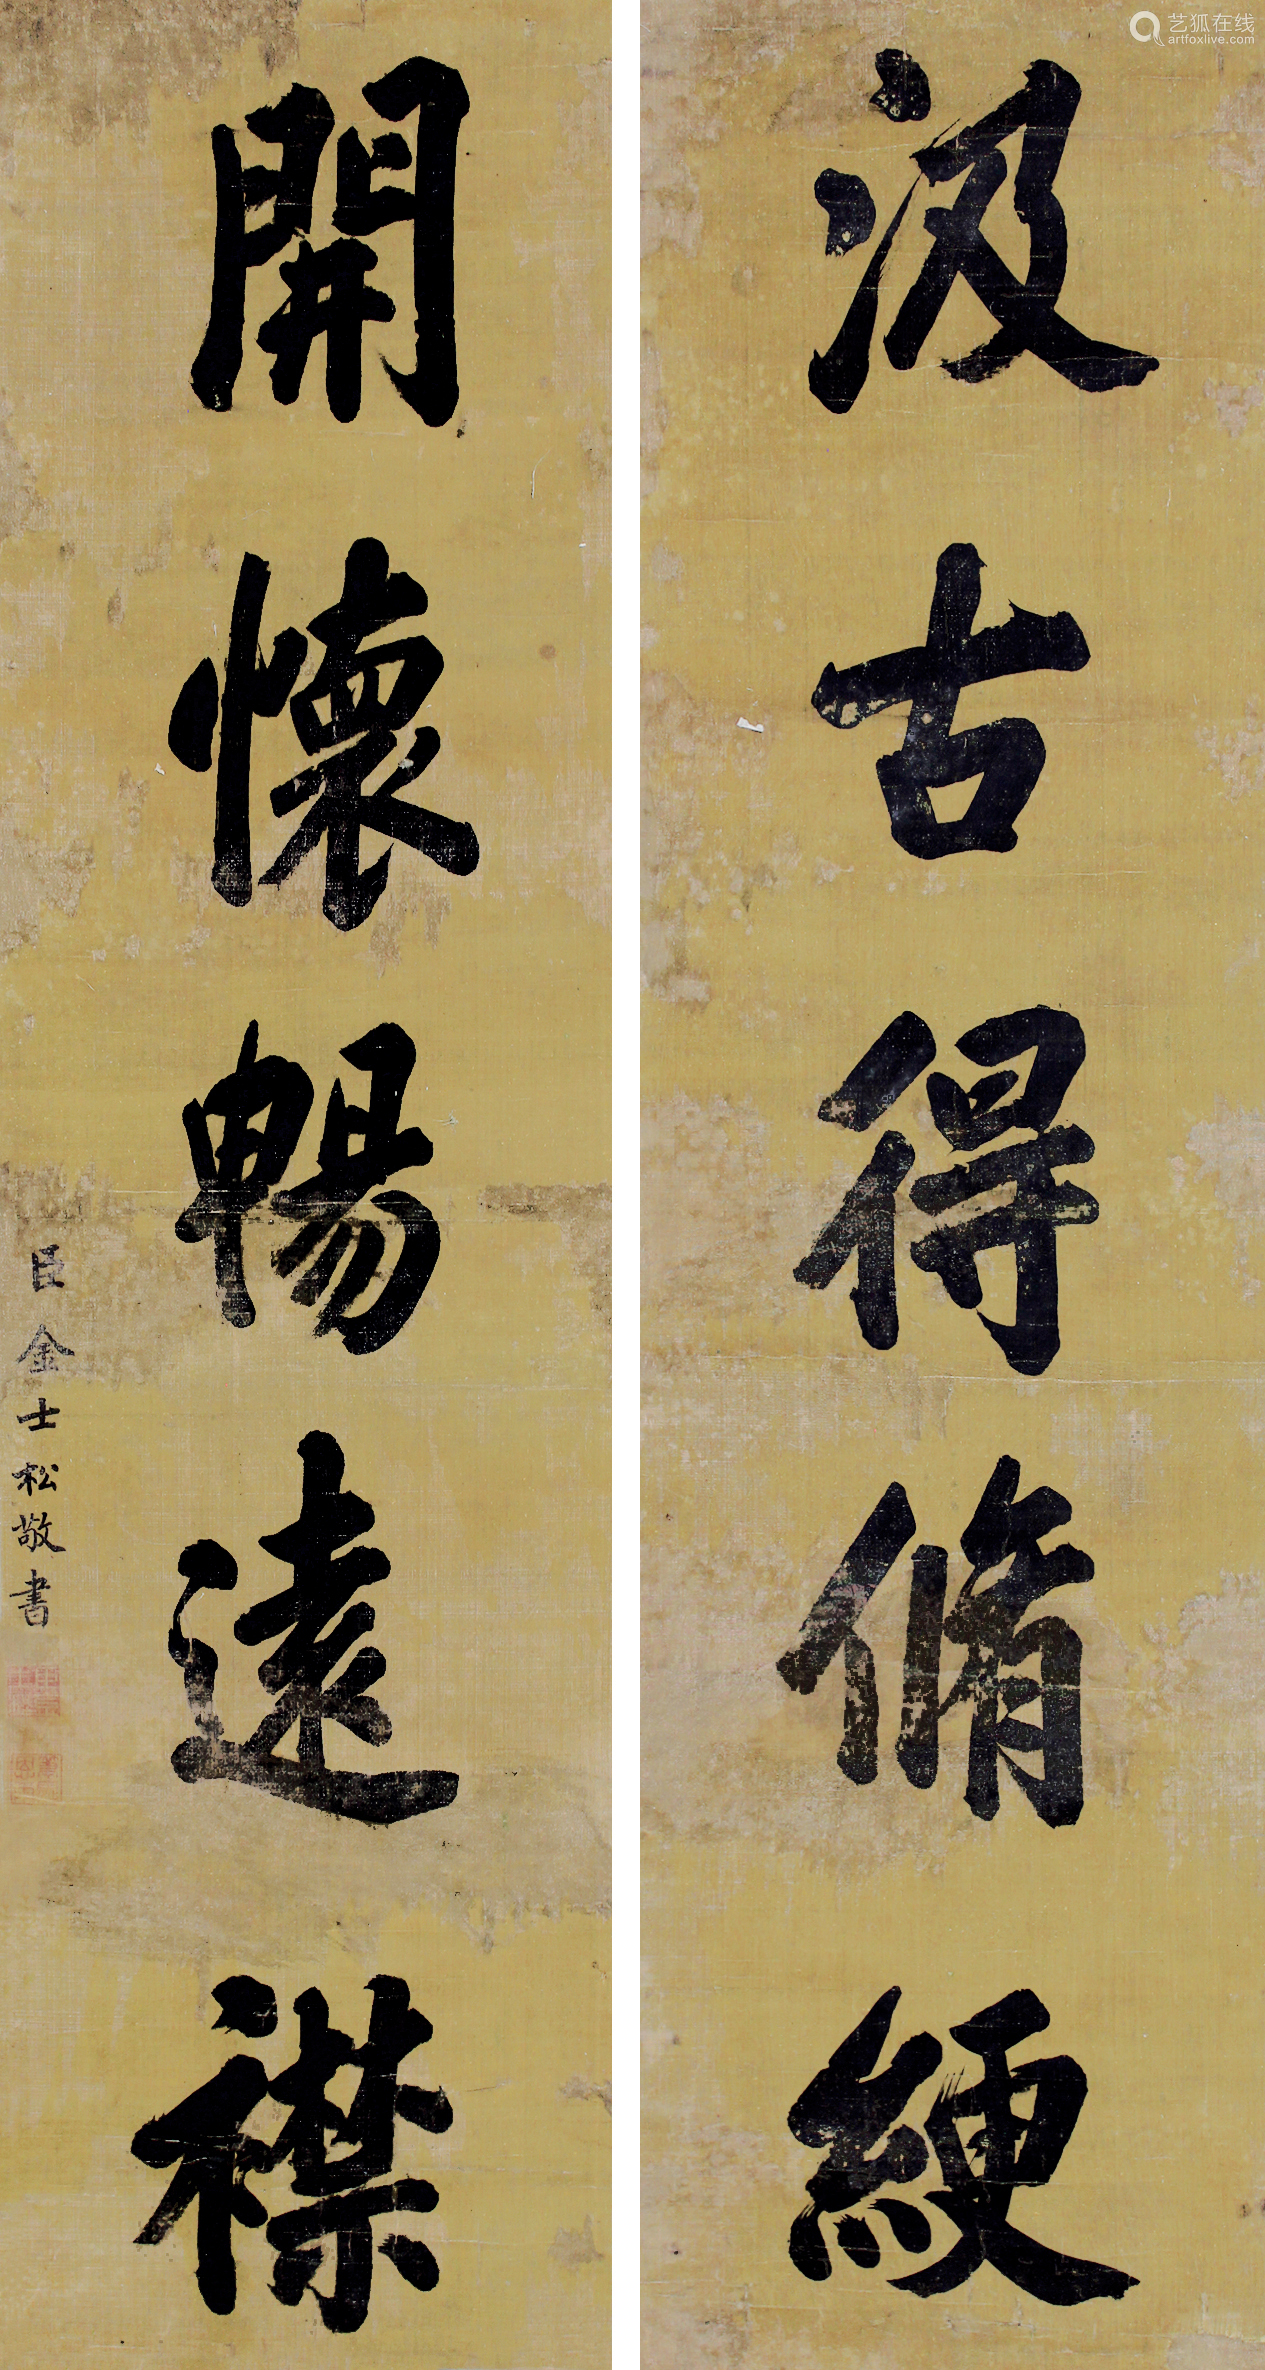 汲古得脩綆
開懷暢遠襟
臣金士松敬書
艺狐在线
artfoxlive.com